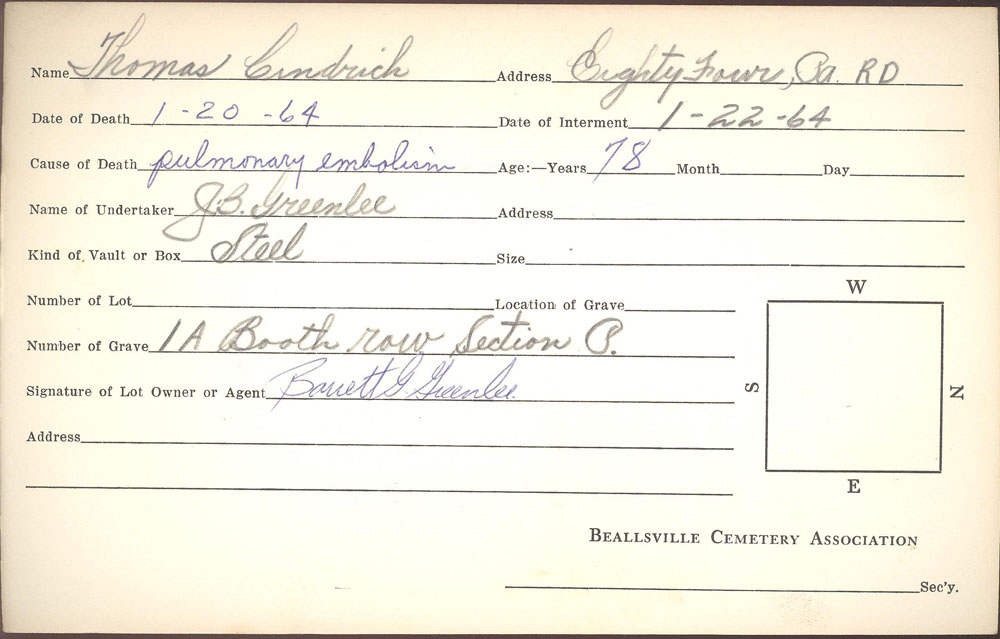 Name Thomas Cindrich Address Eighty Four, Pa. RD
Date of Death 1-20-64 Date of Interment 1-22-64
Cause of Death pulmonary embolism Age:—Years 78 Month Day
Name of Undertaker J.B. Greenlee Address
Kind of Vault or Box Steel Size
Number of Lot Location of Grave
W
Number of Grave 1A Booth row Section P.
Signature of Lot Owner or Agent Barrett G Greenlee
S N
Address
E
BEALLSVILLE CEMETERY ASSOCIATION
Sec'y.